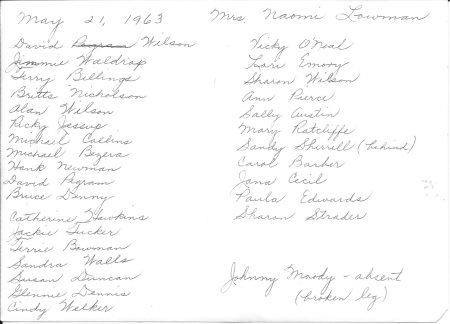 May 21, 1963
David Pegram Wilson
Jimmie Waldrop
Terry Billings
Britts Nicholson
Alan Wilson
Ricky Jessup
Michael Collins
Michael Bezera
Hank Newman
David Pegram
Bruce Denny
Catherine Hawkins
Jackie Tucker
Terrie Bowman
Sandra Walls
Susan Duncan
Glennie Dennis
Cindy Welker
Mrs. Naomi Lowman
Vicky O'Neal
Lori Emory
Sharon Wilson
Ann Pierce
Sally Austin
Mary Ratcliffe
Sandy Sherrill (behind)
Carol Barber
Jana Cecil
Paula Edwards
Sharon Strader
Johnny Moody - absent
(broken leg)